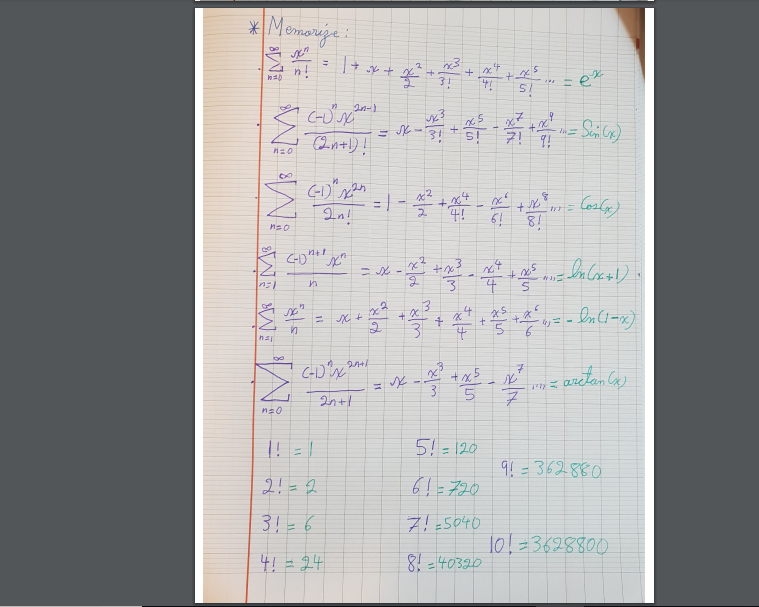 * Memorize:
∞∑n=0 xⁿ/n! = 1 + x + x²/2 + x³/3! + x⁴/4! + x⁵/5! ... = eˣ
∞∑n=0 (-1)ⁿ x²ⁿ⁻¹/(2n+1)! = x - x³/3! + x⁵/5! - x⁷/7! + x⁹/9! ... = Sin(x)
∞∑n=0 (-1)ⁿ x²ⁿ/2n! = 1 - x²/2 + x⁴/4! - x⁶/6! + x⁸/8! .... = Cos(x)
∞∑n=1 (-1)ⁿ⁺¹ xⁿ/n = x - x²/2 + x³/3 - x⁴/4 + x⁵/5 .... = ln(x+1)
∞∑n=1 xⁿ/n = x + x²/2 + x³/3 + x⁴/4 + x⁵/5 + x⁶/6 ... = - ln(1-x)
∞∑n=0 (-1)ⁿ x²ⁿ⁺¹/2n+1 = x - x³/3 + x⁵/5 - x⁷/7 .... = arctan(x)
1! = 1
2! = 2
3! = 6
4! = 24
5! = 120
6! = 720
7! = 5040
8! = 40320
9! = 362880
10! = 3628800